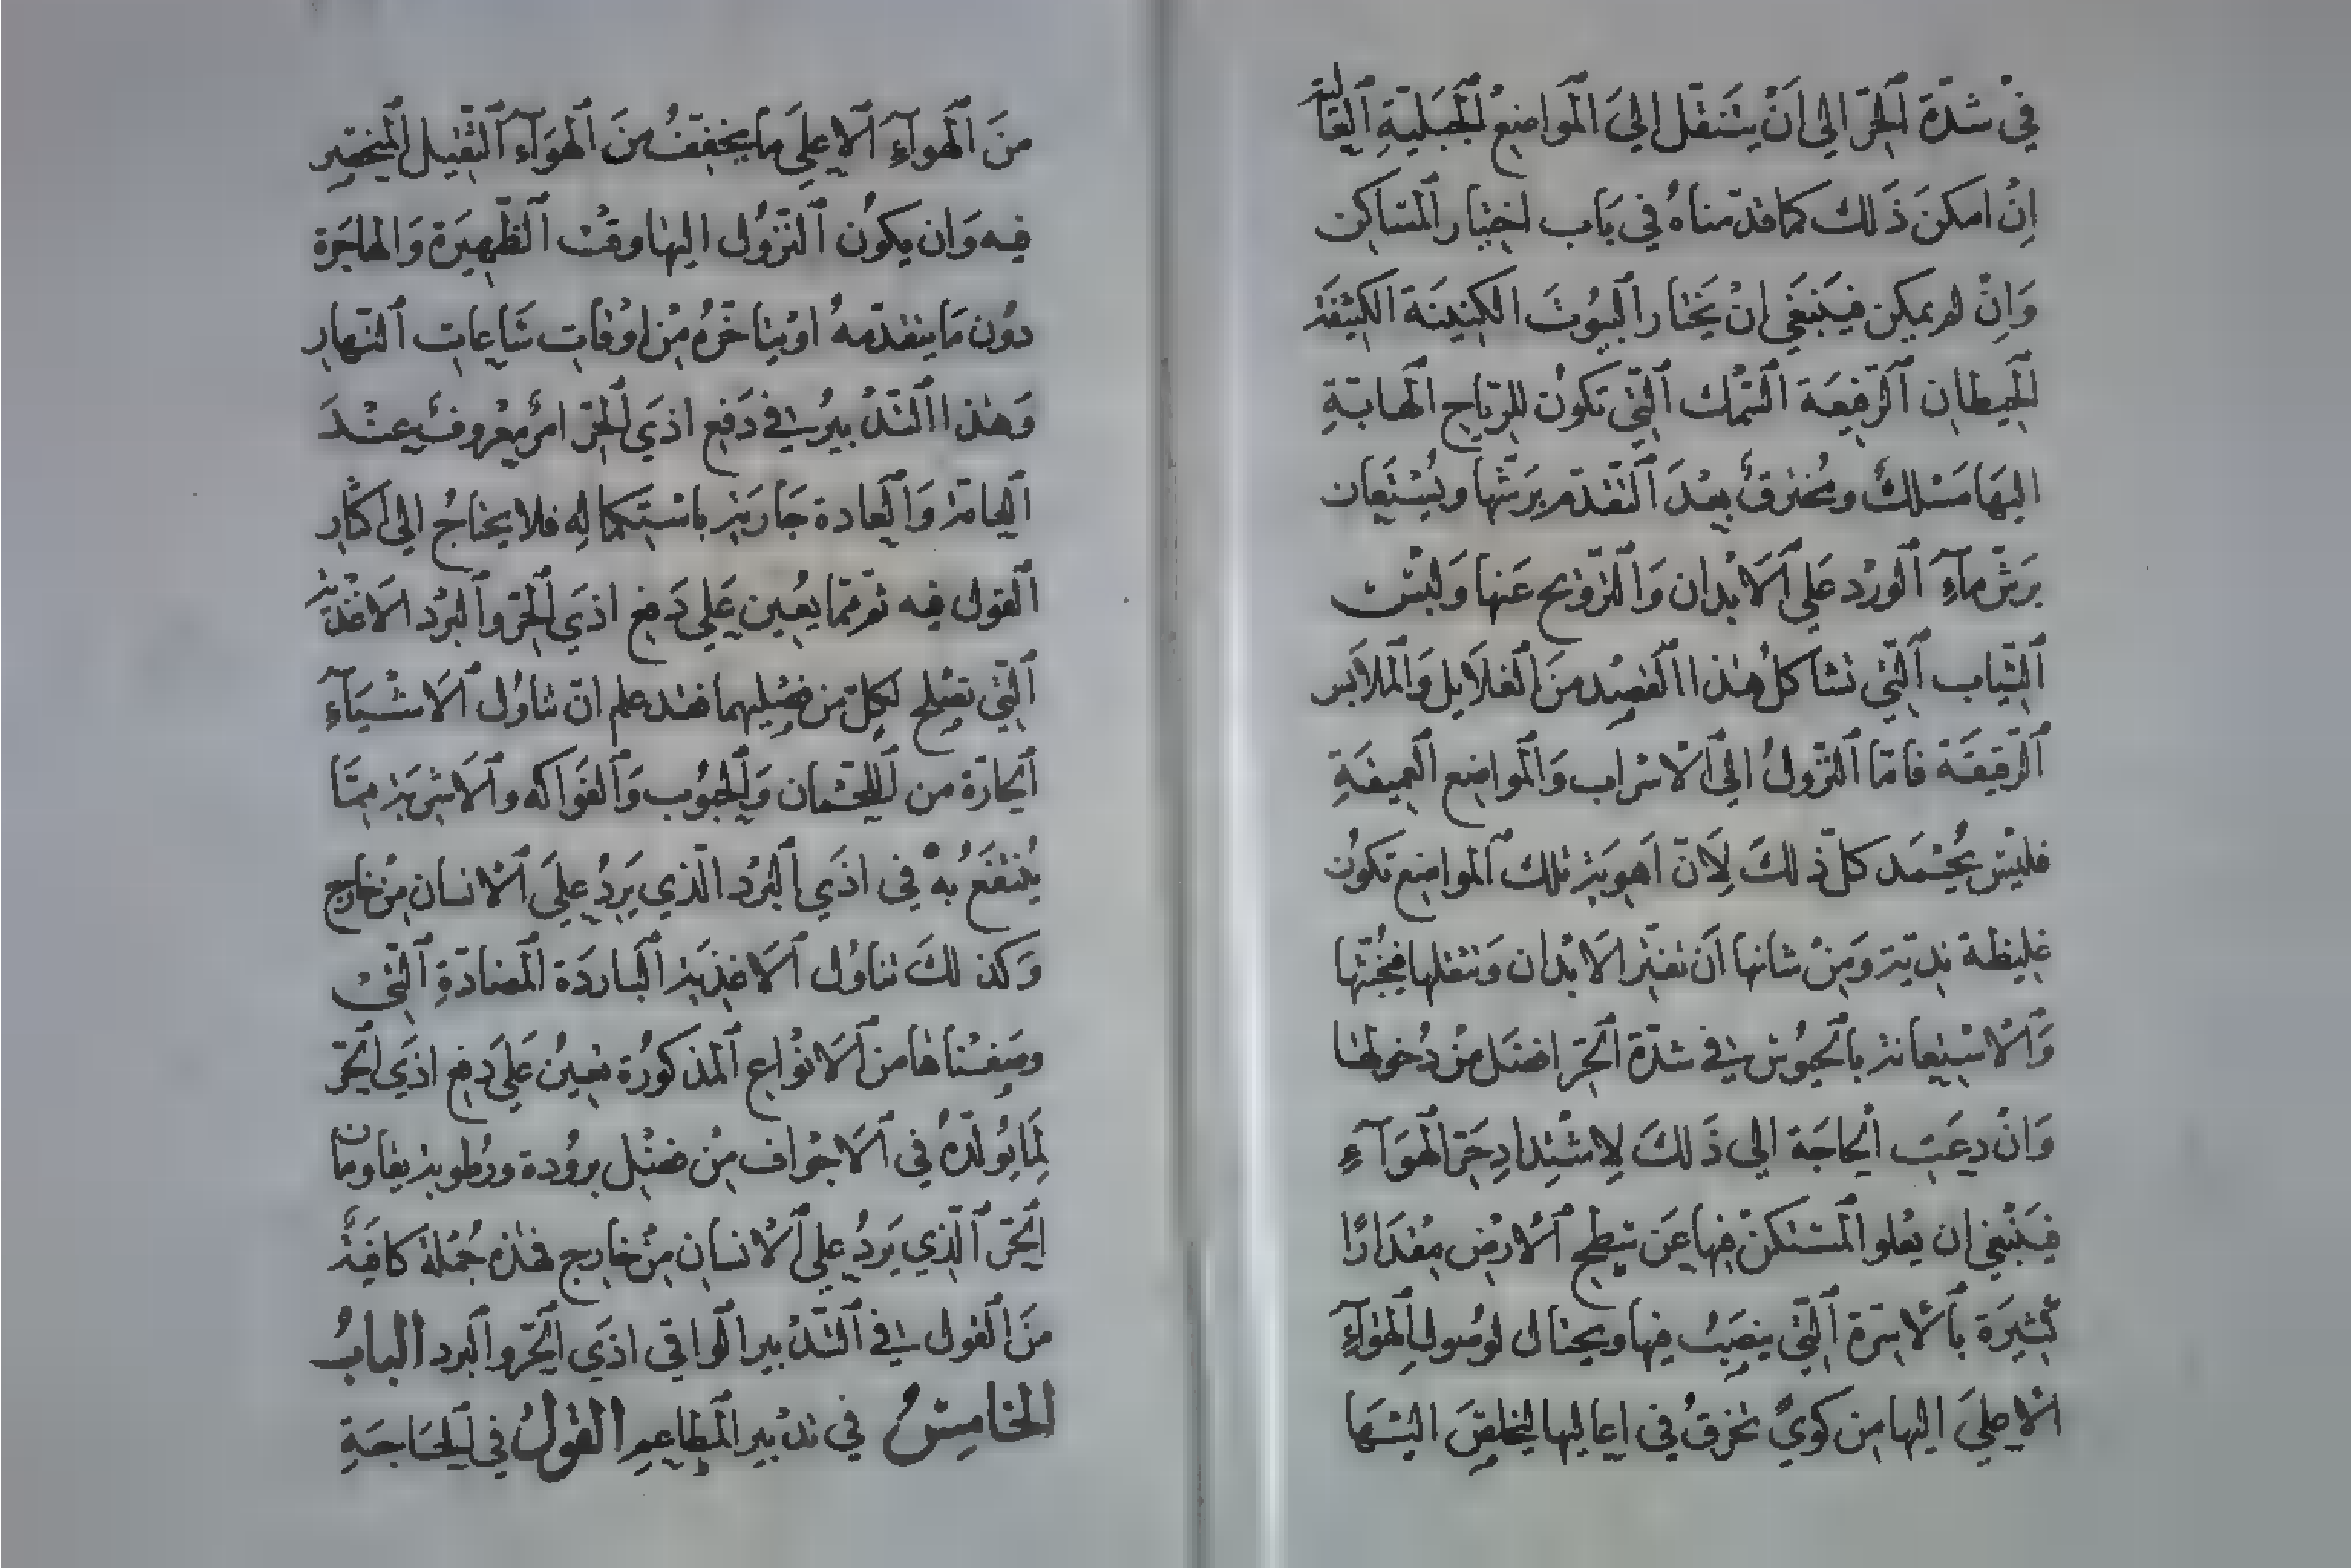 في شدّة الحرّ إلى أن يتنقّل إلى المواضع الجبليّة العالية
إن امكن ذلك كما قدّمناه في باب اختيار المساكن
وإن لم يمكن فينبغي ان يختار البيوت الكنينة الكثيفة
الحيطان الرّفيعة السّمك الّتي تكون للرّياح الهابّة
اليها مسلك ومخترق بعد التّقدّم برشّها ويستعان
برشّ ماء الورد على الابدان والتّرويح عنها ولبس
الثّياب الّتي تشاكل هذا القصد من الغلايل والملابس
الرّقيقة فامّا النّزول الى الاسراب والمواضع العميقة
فليس يحمد كلّ ذلك لانّ اهوية تلك المواضع تكون
غليظة نديّة ومن شانها أن تغيّر الابدان وتثقلها فيخثّها
والاستعانة بالخيوش في شدّة الحرّ افضل من دخولها
وان دعت الحاجة الى ذلك لاشتداد حرّ الهوآء
فينبغي ان يعلو المستكنّ فيها عن سطح الارض مقدارًا
كثيرة بالاسرّة الّتي ينصب فيها ويحتال لوصول الهوآء
الاعلى اليها من كوى تخرق في اعاليها ليخلص اليها
من الهوآء الاعلى ما يخفّف من الهوآء الثّقيل المنحصر
فيه وان يكون النّزول اليها وقت الظّهيرة والهاجرة
دون ما يتقدّمه او يتاخّره من اوقات ساعات النّهار
وهذا التّدبير في دفع اذى الحرّ امر معروف عند
العامّة والعادة جارية باستكماله فلا يحتاج الى اكثار
القول فيه ثمّ ممّا يعين على دفع اذى الحرّ والبرد الاغذية
الّتي تصلح لكلّ من فصليهما فقد علم انّ تناول الاشيآء
الحارّة من اللحمان والحبوب والفواكه والاشربة ممّا
ينتفع به في اذى البرد الّذي يرد على الانسان من خارج
وكذلك تناول الاغذية الباردة المضادّة الّتي
وصفناها من الانواع المذكورة يعين على دفع اذى الحرّ
لما يولّده في الاجواف من فضل برودة ورطوبة يقاومان
الحرّ الّذي يرد على الانسان من خارج فهذه جملة كافية
من القول في التّدبير الواقي اذى الحرّ والبرد الباب
الخامس في تدبير المطاعم القول في الحاجة